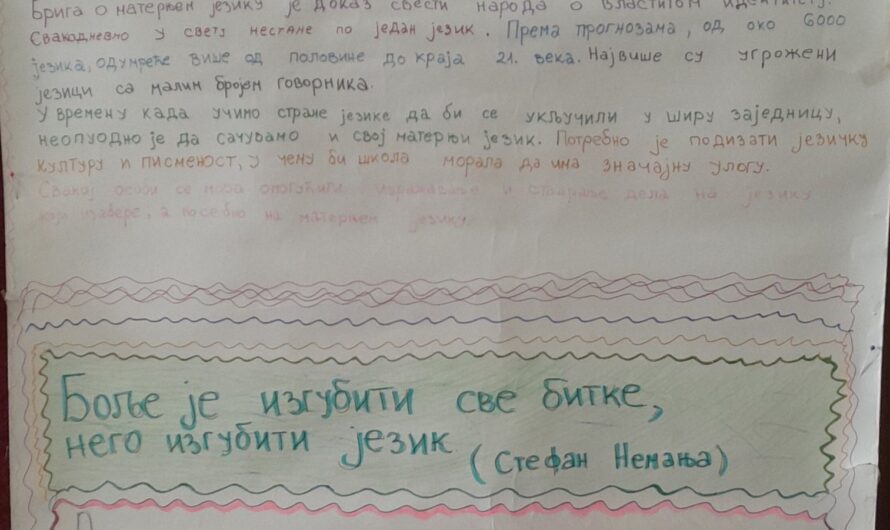 Брига о матерњем језику је доказ свести народа о властитом идентитету.
Свакодневно у свету нестане по један језик. Према прогнозама, од око 6000
језика, одумреће више од половине до краја 21. века. Највише су угрожени
језици са малим бројем говорника.
У времену када учимо стране језике да би се укључили у ширу заједницу,
неопуодно је да сачувамо и свој матерњи језик. Потребно је подизати језичку
културу и писменост, у чему би школа морала да има значајну улогу.
Свакој особи се мора омогућити изражавање и стварање дела на језику
који изабере, а посебно на матерњем језику.
Боље је изгубити све битке,
него изгубити језик (Стефан Немања)